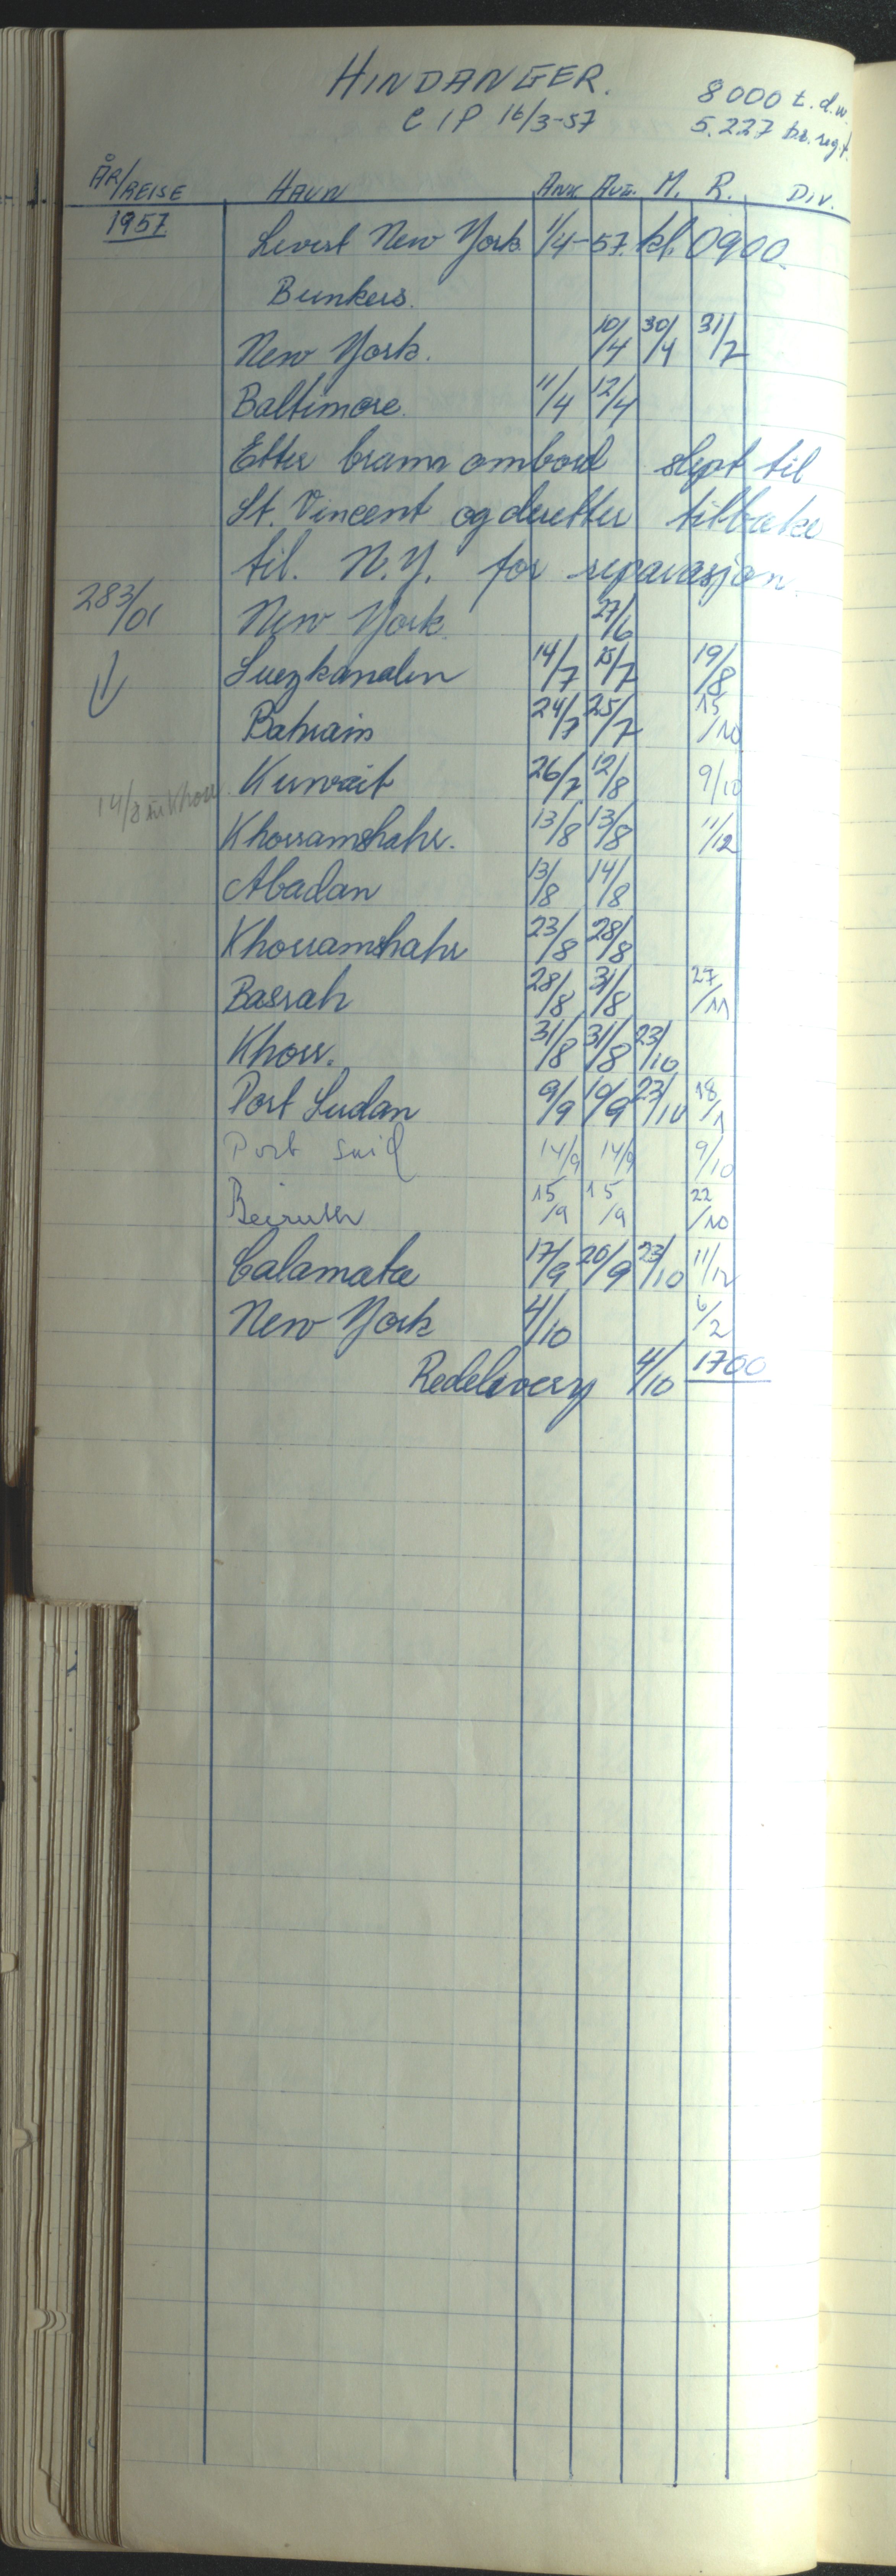 HINDANGER.
8000 t. d.w.
C/P 16/3-57
5.227 br. reg.t.
ÅR/REISE HAVN ANK. AVG. M. R. DIV.
1957
Levert New York 1/4-57. kl. 0900.
Bunkers.
New York. 10/4 30/4 31/7
Baltimore. 11/4 12/4
Etter brann ombord slept til
St. Vincent og deretter tilbake
til. N.Y. for reparasjon.
283/01 New York 27/6
Suezkanalen 14/7 15/7 19/8
Bahrain 24/7 25/7 15/10
Kuwait 26/7 12/8 9/10
14/8 Khorr
Khorramshahr. 13/8 13/8 11/12
Abadan 13/8 14/8
Khorramshahr 23/8 28/8
Basrah 28/8 31/8 27/11
Khorr. 31/8 31/8 23/10
Port Sudan 9/9 10/9 23/10 18/1
Port Said 14/9 14/9 9/10
Beiruth 15/9 15/9 22/10
Calamata 17/9 20/9 23/10 11/12
New York 4/10 6/2
Redelivery 4/10 1700